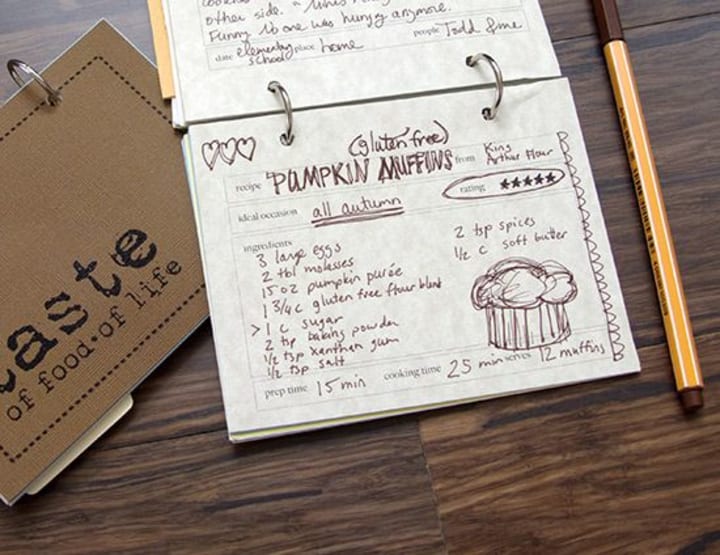 other side. a
Funny No one was hungry anymore.
date elementary school place home people Todd & me
taste
of food of life
(gluten free)
recipe PUMPKIN MUFFINS from King Arthur Flour
rating ★★★★★
ideal occasion all autumn
ingredients
3 large eggs
2 tbl molasses
15 oz pumpkin purée
1 3/4 c gluten free flour blend
> 1 c sugar
2 tsp baking powder
1/2 tsp xanthan gum
1/2 tsp salt
2 tsp spices
1/2 c soft butter
prep time 15 min cooking time 25 min serves 12 muffins